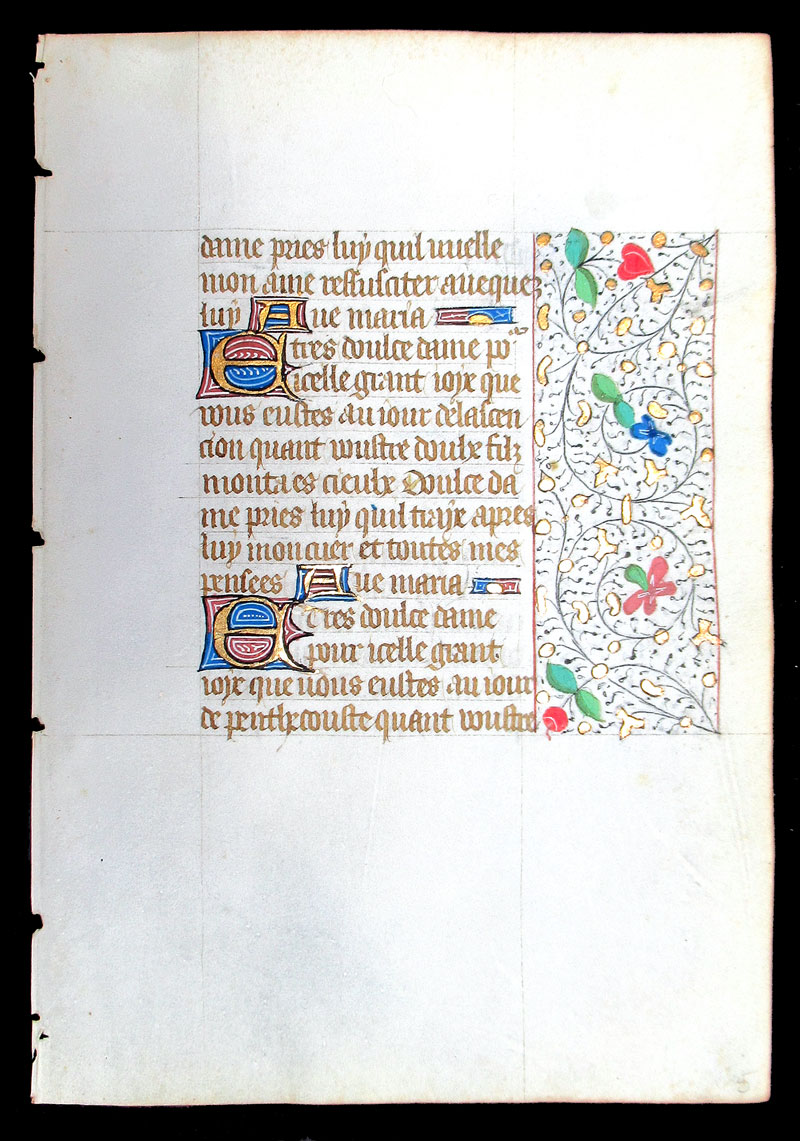 dame pries luy quil vuelle
mon ame ressusciter auequez
luy Aue maria
E tres doulce dame po᷑
icelle grant ioye que
vous eustes au iour delascen
cion quant vostre doulx filz
monta es cieulx Doulce da
me pries luy quil traye apres
luy mon cuer et toutes mes
pensees Aue maria
E tres doulce dame
pour icelle grant
ioye que vous eustes au iour
de penthecouste quant vostre